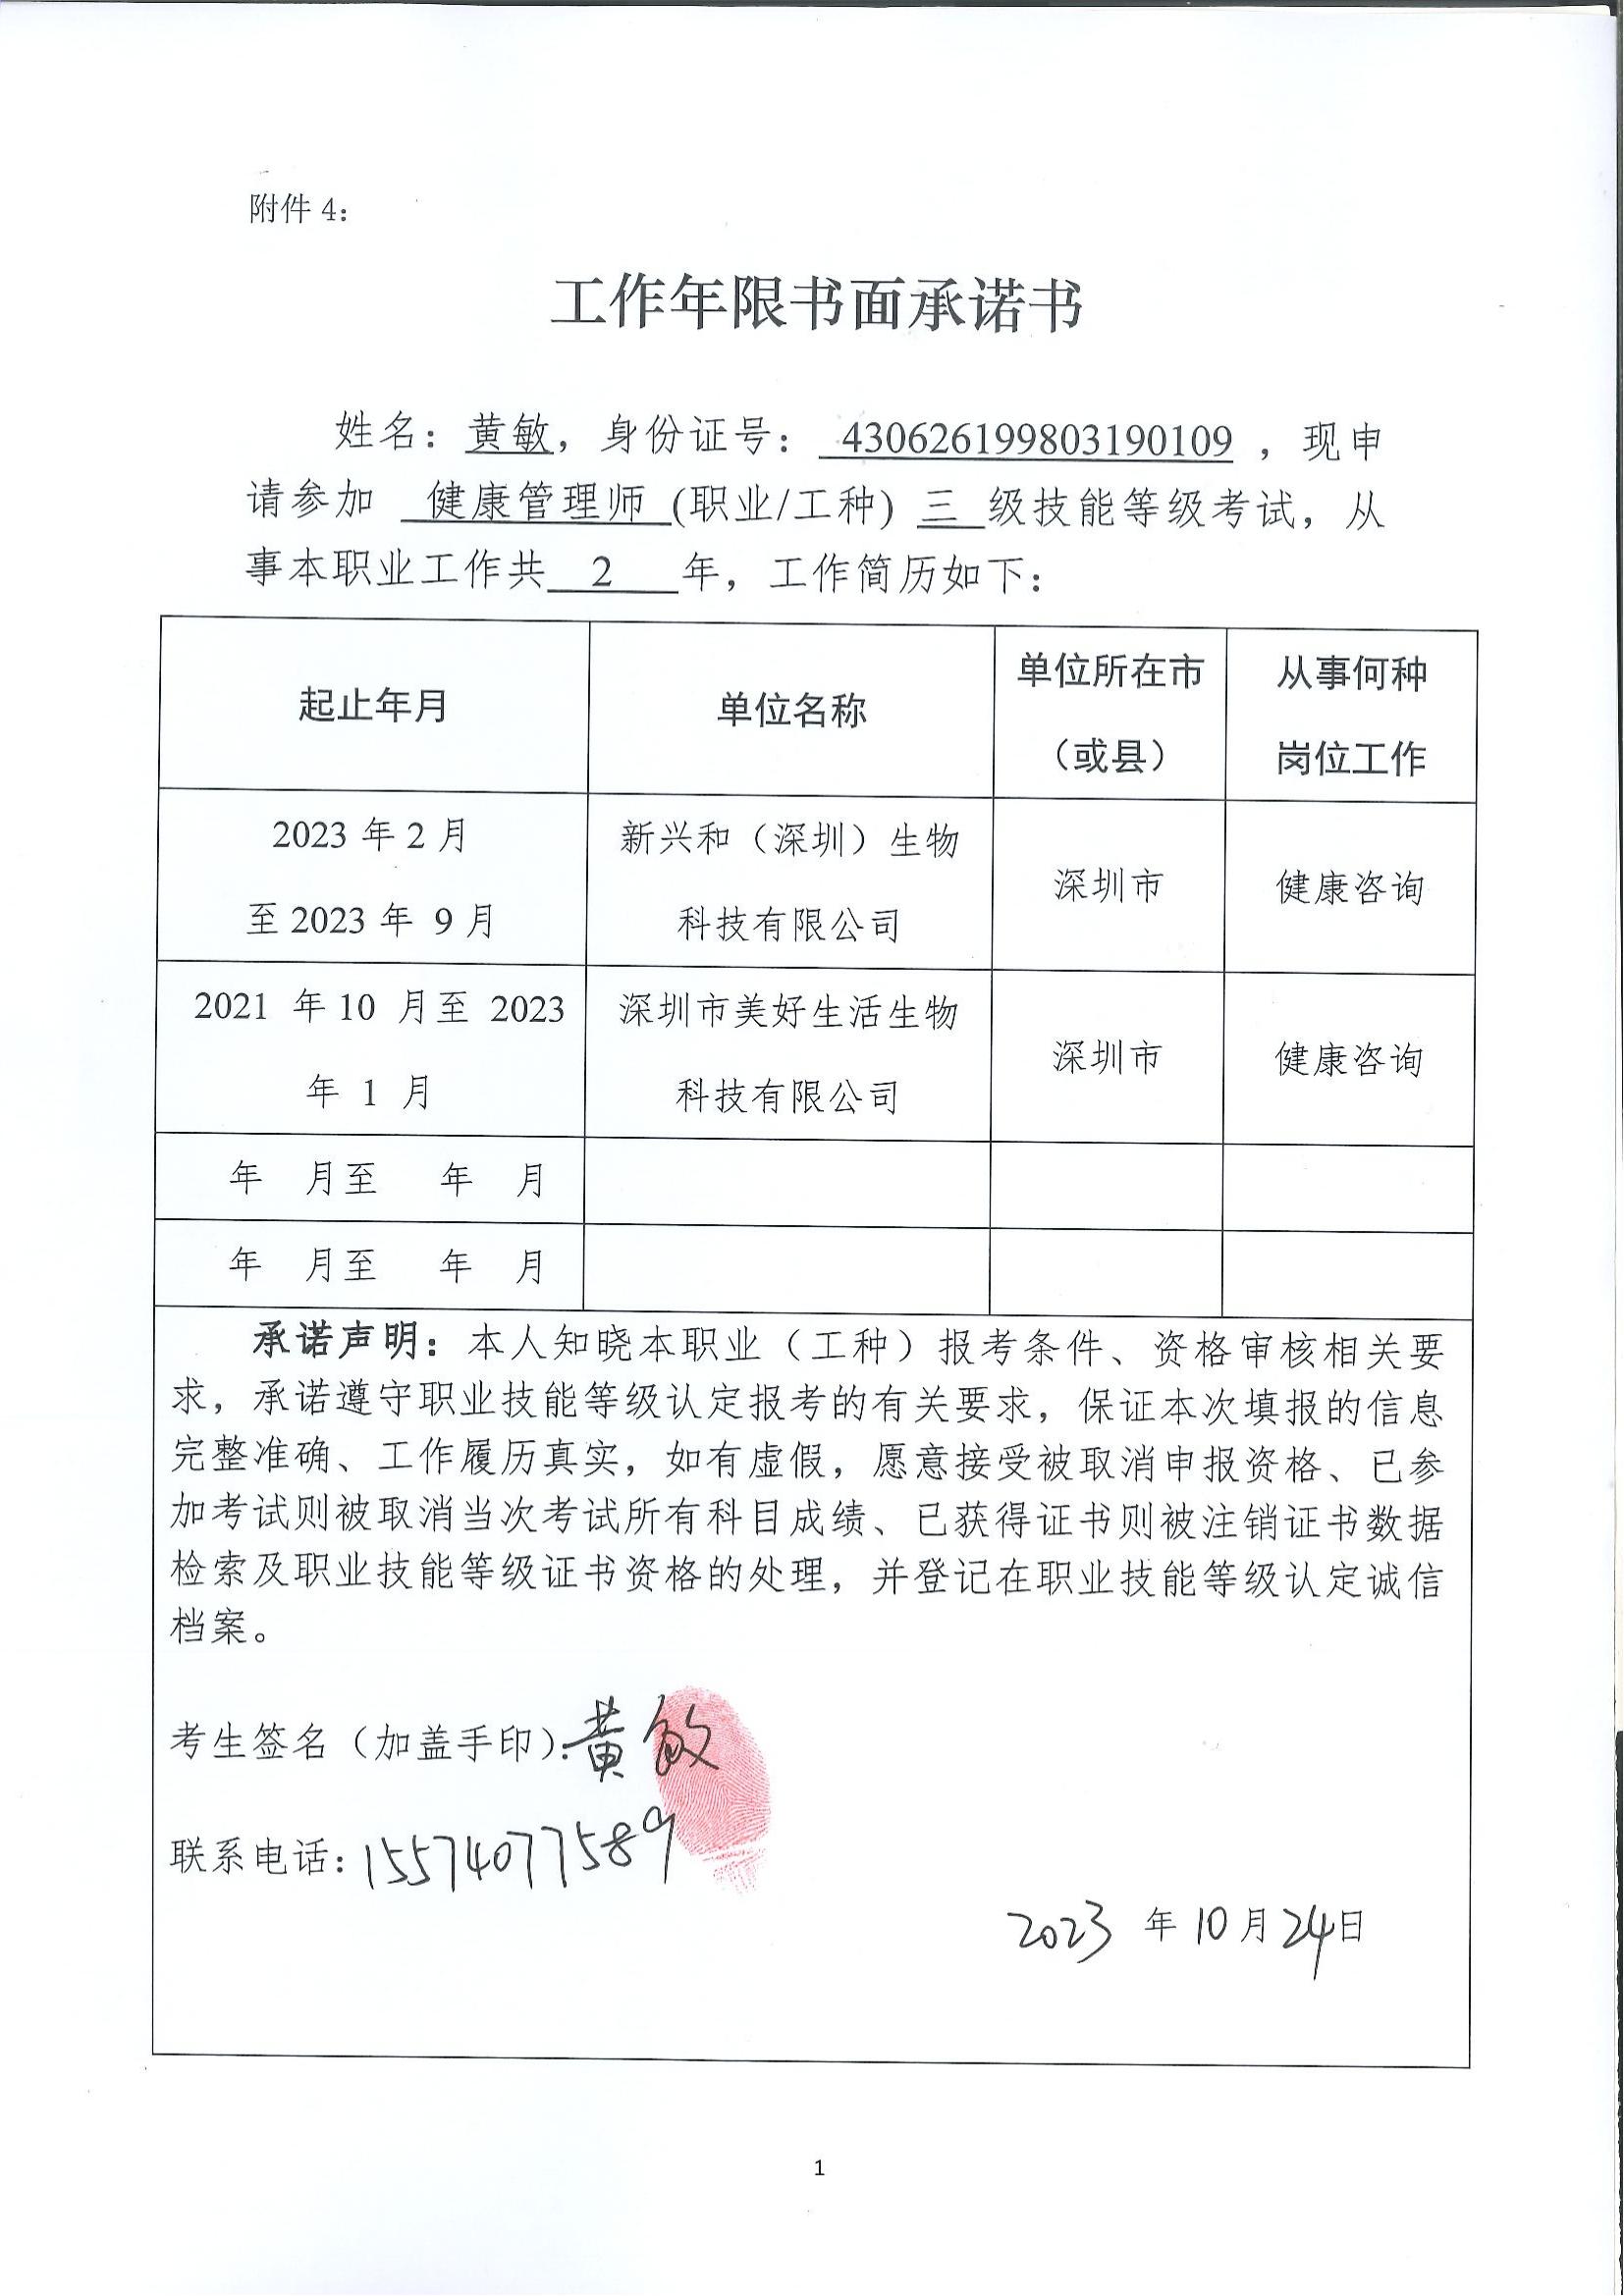 附件 4：
工作年限书面承诺书
姓名：黄敏，身份证号：430626199803190109，现申
请参加 健康管理师 (职业/工种) 三 级技能等级考试，从
事本职业工作共 2 年，工作简历如下：
起止年月 单位名称 单位所在市（或县） 从事何种岗位工作
2023 年 2 月 新兴和（深圳）生物
至 2023 年 9 月 科技有限公司 深圳市 健康咨询
2021 年 10 月至 2023 深圳市美好生活生物
年 1 月 科技有限公司 深圳市 健康咨询
年 月至 年 月
年 月至 年 月
承诺声明：本人知晓本职业（工种）报考条件、资格审核相关要
求，承诺遵守职业技能等级认定报考的有关要求，保证本次填报的信息
完整准确、工作履历真实，如有虚假，愿意接受被取消申报资格、已参
加考试则被取消当次考试所有科目成绩、已获得证书则被注销证书数据
检索及职业技能等级证书资格的处理，并登记在职业技能等级认定诚信
档案。
考生签名（加盖手印）：黄敏
联系电话：15574077589
2023 年 10 月 24 日
1